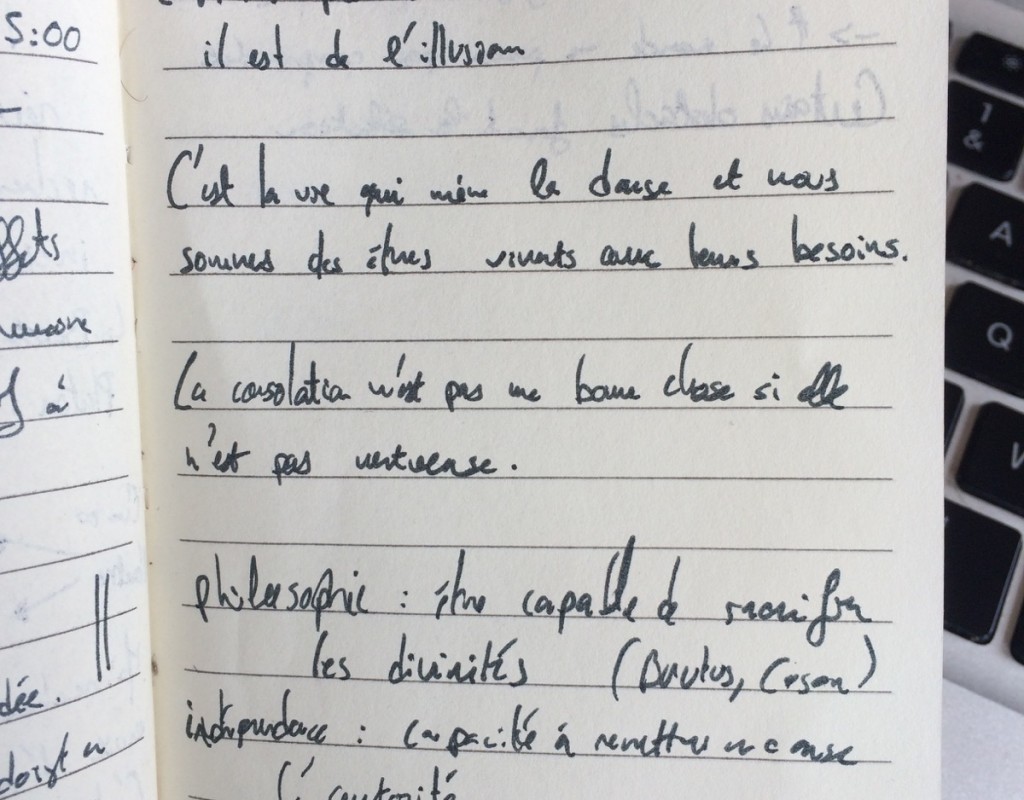 5:00
ffets
à
dée.
doigt
il est de l'illusion
C'est la vie qui mène la danse et nous
sommes des êtres vivants avec leurs besoins.
La consolation n'est pas une bonne chose si elle
n'est pas vertueuse.
philosophie : être capable de sacrifier
les divinités (Brutus, César)
indépendance : capacité à remettre en cause
l'autorité
1
&
A
Q